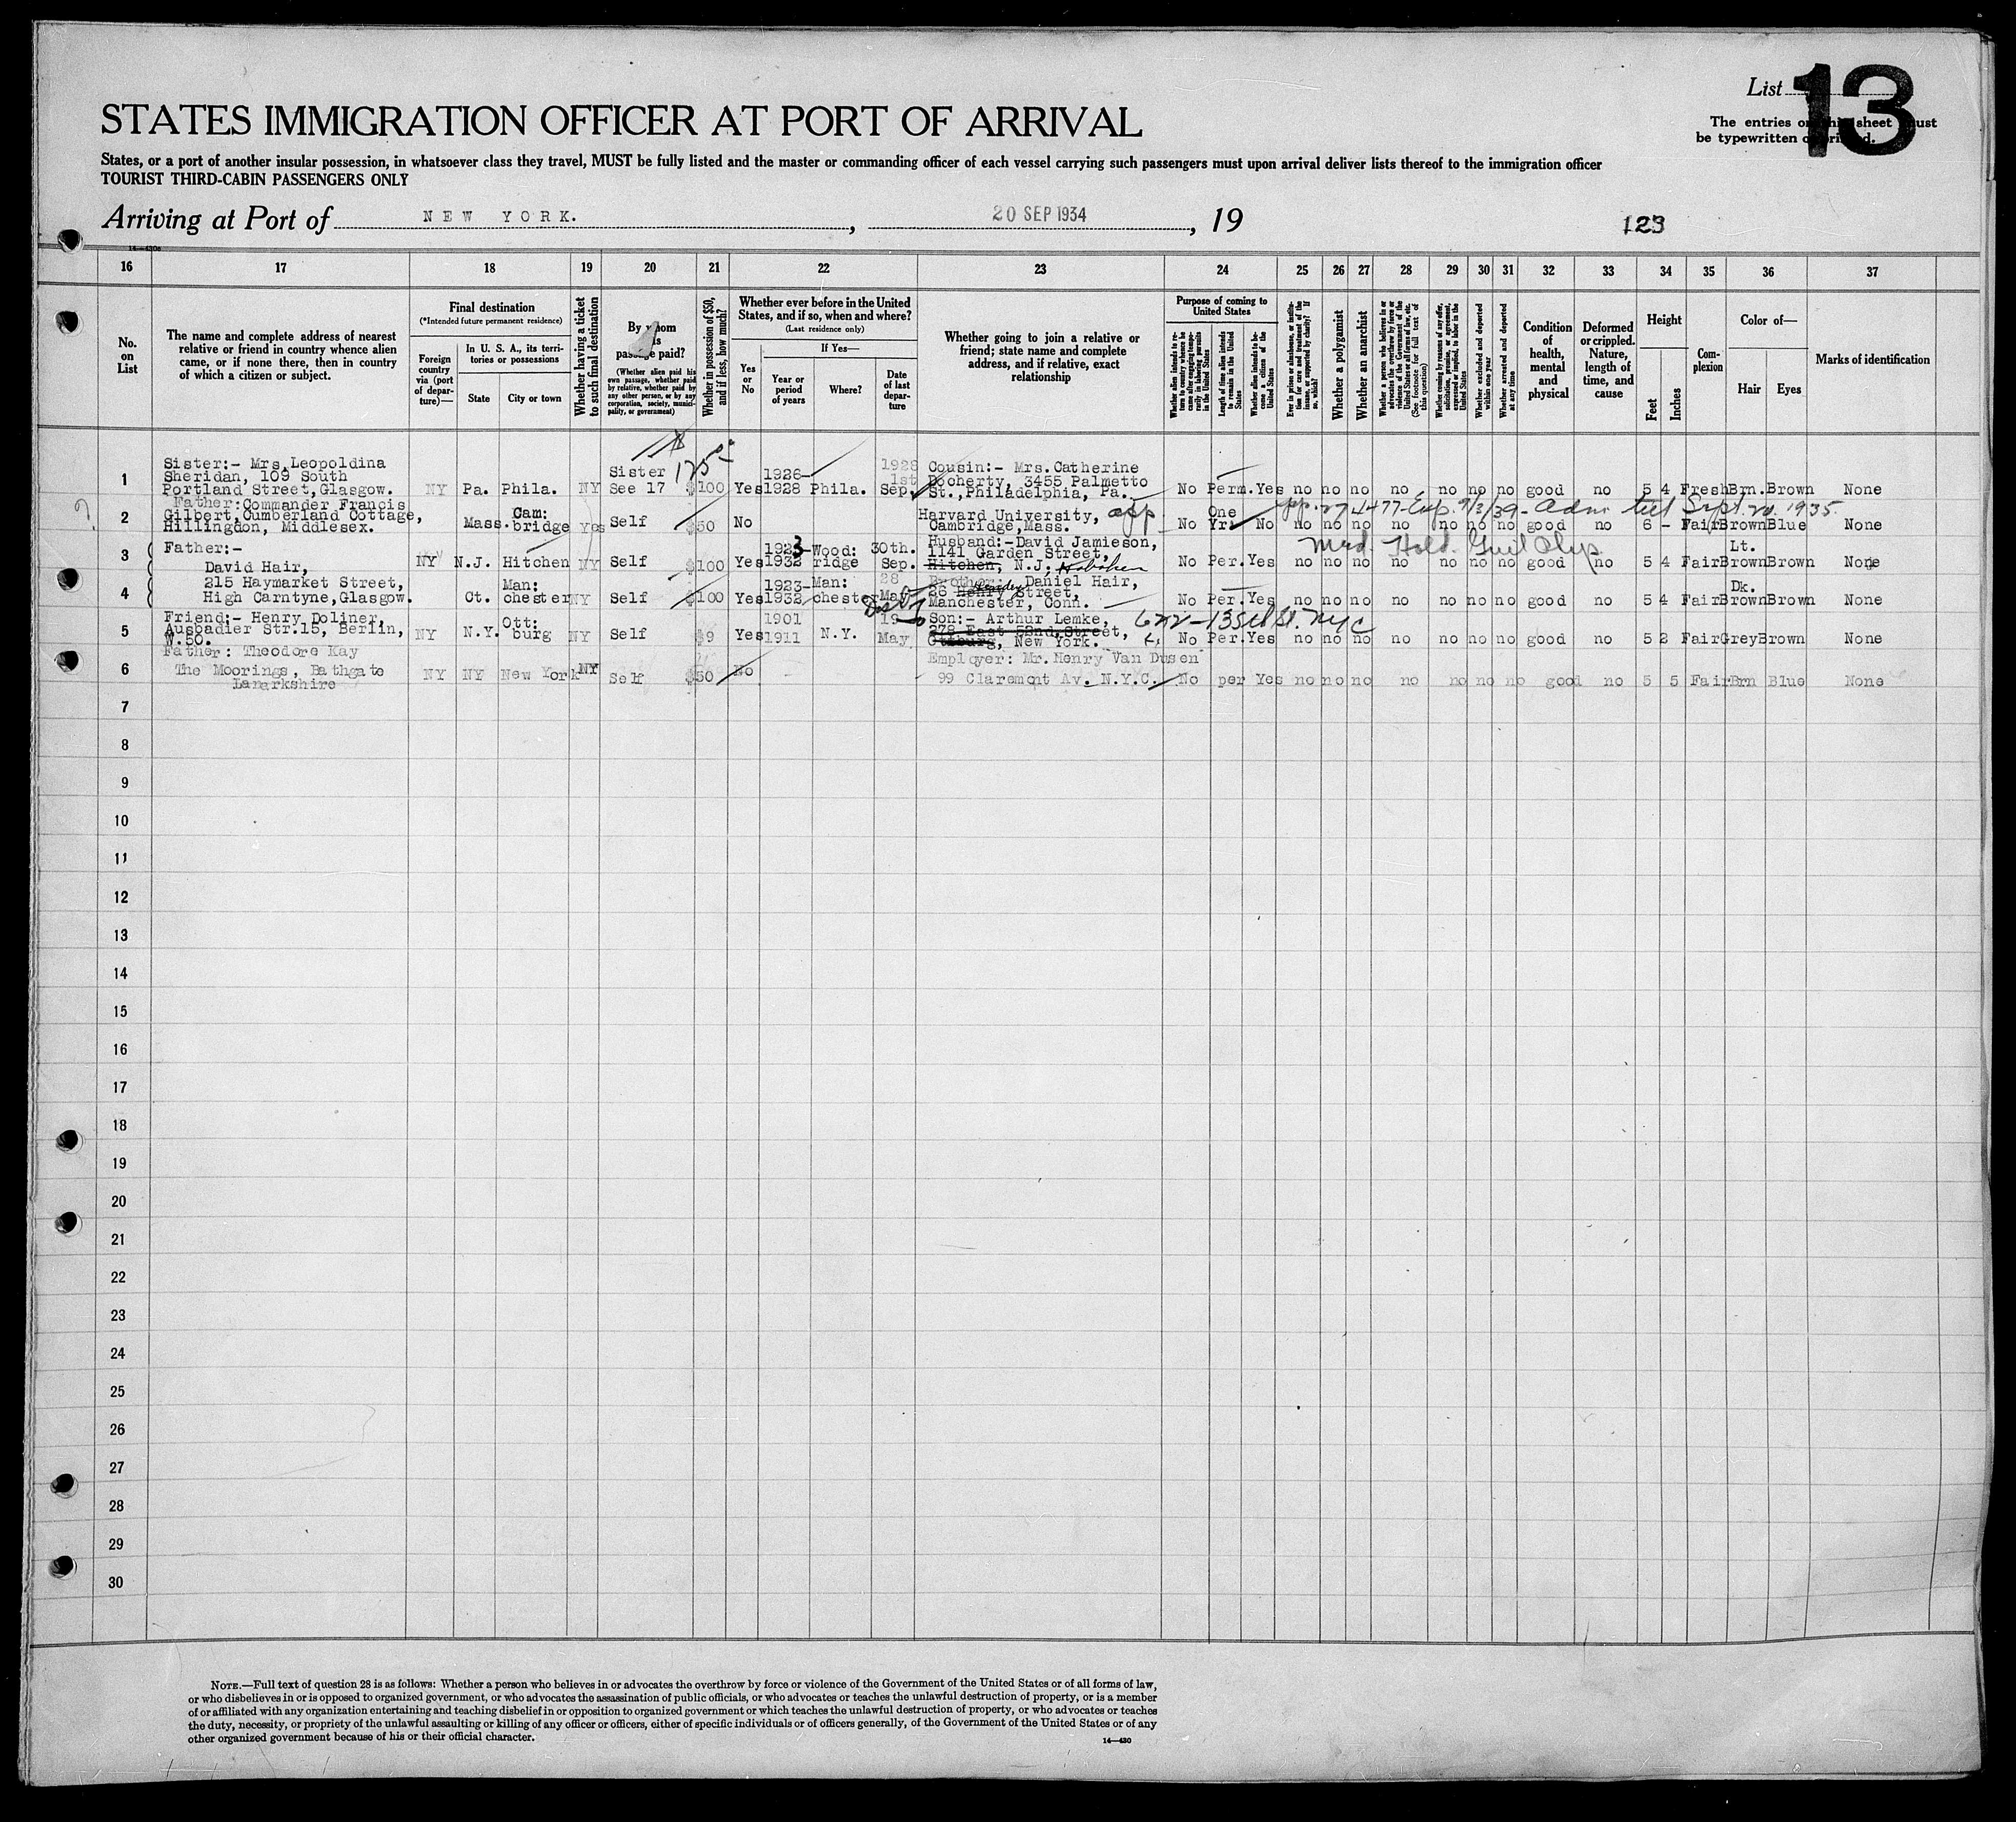 List 13
The entries on this sheet must
be typewritten or printed.
STATES IMMIGRATION OFFICER AT PORT OF ARRIVAL
States, or a port of another insular possession, in whatsoever class they travel, MUST be fully listed and the master or commanding officer of each vessel carrying such passengers must upon arrival deliver lists thereof to the immigration officer
TOURIST THIRD-CABIN PASSENGERS ONLY
Arriving at Port of NEW YORK. , 20 SEP 1934 , 19
123
16 17 18 19 20 21 22 23 24 25 26 27 28 29 30 31 32 33 34 35 36 37
No. on List
The name and complete address of nearest relative or friend in country whence alien came, or if none there, then in country of which a citizen or subject.
Final destination
(*Intended future permanent residence)
Foreign country via (port of departure)—
In U. S. A., its territories or possessions
State
City or town
Whether having a ticket to such final destination
By whom was passage paid?
(Whether alien paid his own passage, whether paid by relative, whether paid by any other person, or by any corporation, society, municipality, or government)
Whether in possession of $50, and if less, how much?
Whether ever before in the United States, and if so, when and where?
(Last residence only)
Yes or No
If Yes—
Year or period of years
Where?
Date of last departure
Whether going to join a relative or friend; state name and complete address, and if relative, exact relationship
Purpose of coming to United States
Length of time alien intends to remain in the United States
Whether alien intends to become a citizen of the United States
Whether a polygamist
Whether an anarchist
Whether excluded and deported within one year
Whether arrested and deported at any time
Condition of health, mental and physical
Deformed or crippled. Nature, length of time, and cause
Height
Feet
Inches
Complexion
Color of—
Hair
Eyes
Marks of identification
1 Sister:- Mrs.Leopoldina
Sheridan, 109 South
Portland Street,Glasgow. NY Pa. Phila. NY Sister See 17 175 $100 Yes 1926-1928 Phila. 1928 1st Sep. Cousin:- Mrs.Catherine
Docherty, 3455 Palmetto
St.,Philadelphia, Pa. No Perm. Yes no no no no no no no good no 5 4 Fresh Brn. Brown None
2 Father:Commander Francis
Gilbert,Cumberland Cottage,
Hillingdon, Middlesex. Mass. Cam:bridge Yes Self $50 No Harvard University, app.
Cambridge,Mass. No One Yr. No no no no no no no no good no 6 - Fair Brown Blue None
Adm till Sept. 20, 1935.
3 Father:-
David Hair, NY N.J. Hitchen NY Self $100 Yes 1923-1932 Wood:ridge 30th. Sep. Husband:-David Jamieson,
1141 Garden Street,
Hitchen, N.J. Hoboken No Per. Yes no no no no no no no good no 5 4 Fair Lt. Brown Brown None
4 215 Haymarket Street,
High Carntyne,Glasgow. Ct. Man:chester NY Self $100 Yes 1923-1932 Man:chester 28 May Brother: Daniel Hair,
26 Henry Street,
Manchester, Conn. No Per. Yes no no no no no no no good no 5 4 Fair Dk. Brown Brown None
5 Friend:- Henry Doliner,
Ausbadier Str.15, Berlin,
W.50. NY N.Y. Ott:burg NY Self $9 Yes 1901 1911 N.Y. May Son:- Arthur Lemke, 622-135th St. NYC
278 East 52nd,Street,
Ottburg, New York. No Per. Yes no no no no no no no good no 5 2 Fair Grey Brown None
6 Father: Theodore Kay
The Moorings, Bathgate
Lanarkshire NY NY New York NY Self $50 No Employer: Mr. Henry Van Dusen
99 Claremont Av. N.Y.C. No per Yes no no no no no no no good no 5 5 Fair Brn Blue None
7
8
9
10
11
12
13
14
15
16
17
18
19
20
21
22
23
24
25
26
27
28
29
30
NOTE.—Full text of question 28 is as follows: Whether a person who believes in or advocates the overthrow by force or violence of the Government of the United States or of all forms of law,
or who disbelieves in or is opposed to organized government, or who advocates the assassination of public officials, or who advocates or teaches the unlawful destruction of property, or is a member
of or affiliated with any organization entertaining and teaching disbelief in or opposition to organized government or which teaches the unlawful destruction of property, or who advocates or teaches
the duty, necessity, or propriety of the unlawful assaulting or killing of any officer or officers, either of specific individuals or of officers generally, of the Government of the United States or of any
other organized government because of his or their official character.
14—430